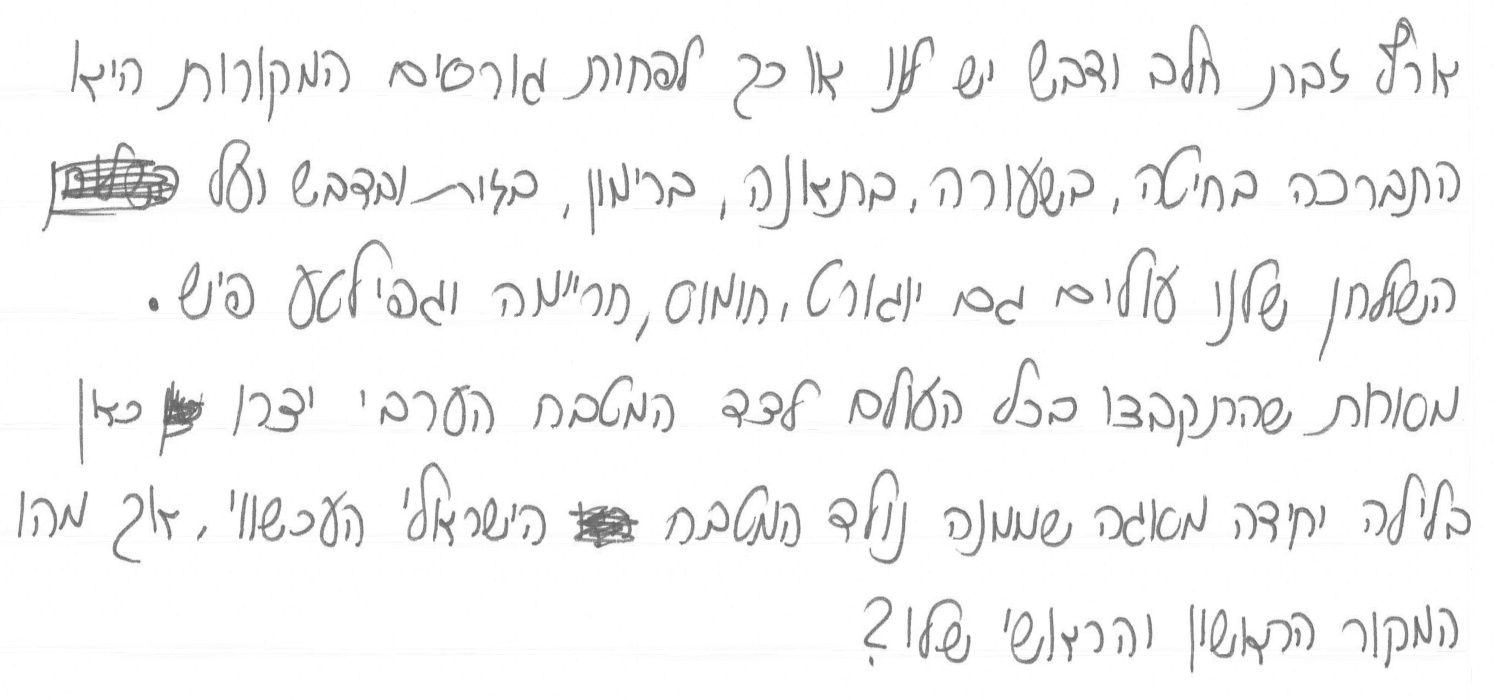 ארץ זבת חלב ודבש יש לנו או כך לפחות גורסים המקורות היא
התברכה בחיטה, בשעורה, בתאנה, ברימון, בזית ובדבש ועל
השולחן שלנו עולים גם יוגורט, חומוס, חריימה וגפילטע פיש.
מסורות שהתקבצו בכל העולם לצד המטבח הערבי יצרו כאן
בלילה יחידה מסוגה שממנה נולד המטבח הישראלי העכשווי, אך מהו
המקור הראשון והראשי שלו?